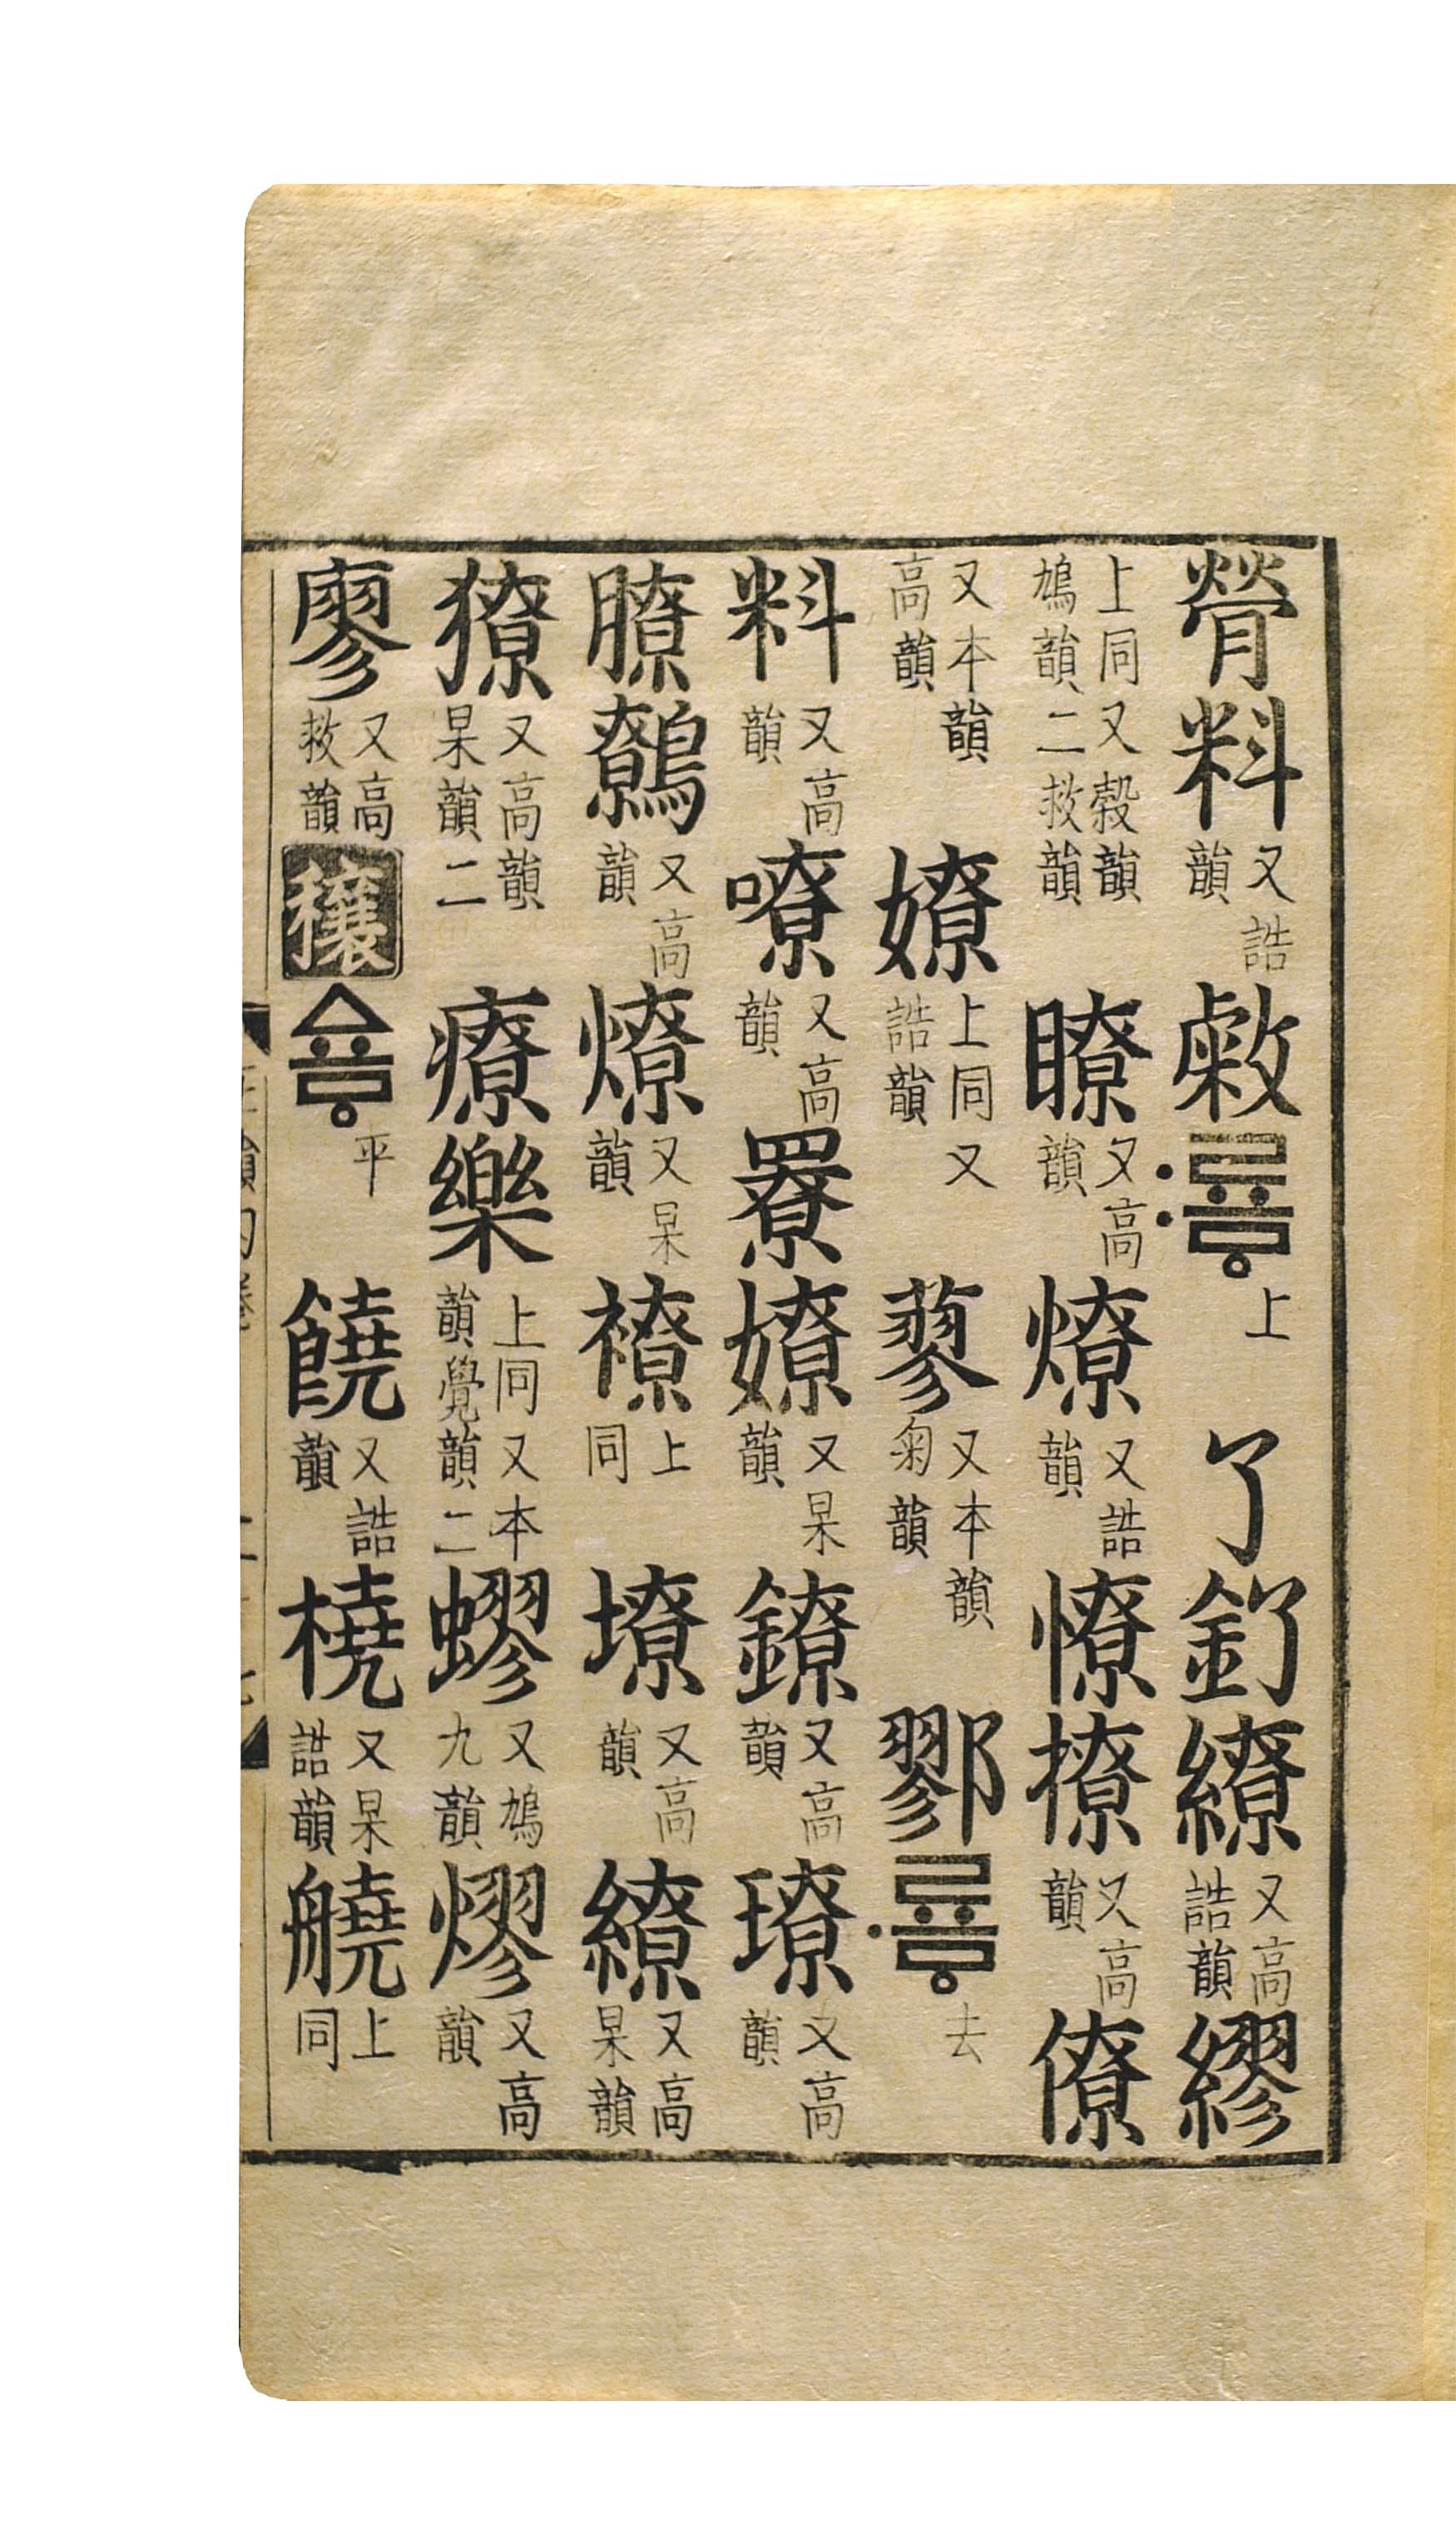 膋料又誥韻敹〯료ᇢ上了釕繚又高誥韻繆
上同又穀韻鳩韻二救韻瞭又高韻燎又誥韻憭撩又高韻僚
又本韻高韻嫽上同又誥韻蓼又本韻菊韻鄝〮료ᇢ去
料又高韻嘹又高韻嫽又杲韻鐐又高韻璙又高韻
膫鷯又高韻燎又杲韻䄦上同𡑍又高韻繚又高杲韻
獠又高韻杲韻二療樂上同又本韻覺韻二蟉又鳩九韻熮又高韻
廖又高救韻穰ᅀᅭᇢ平饒又誥韻橈又杲誥韻𦪛上同